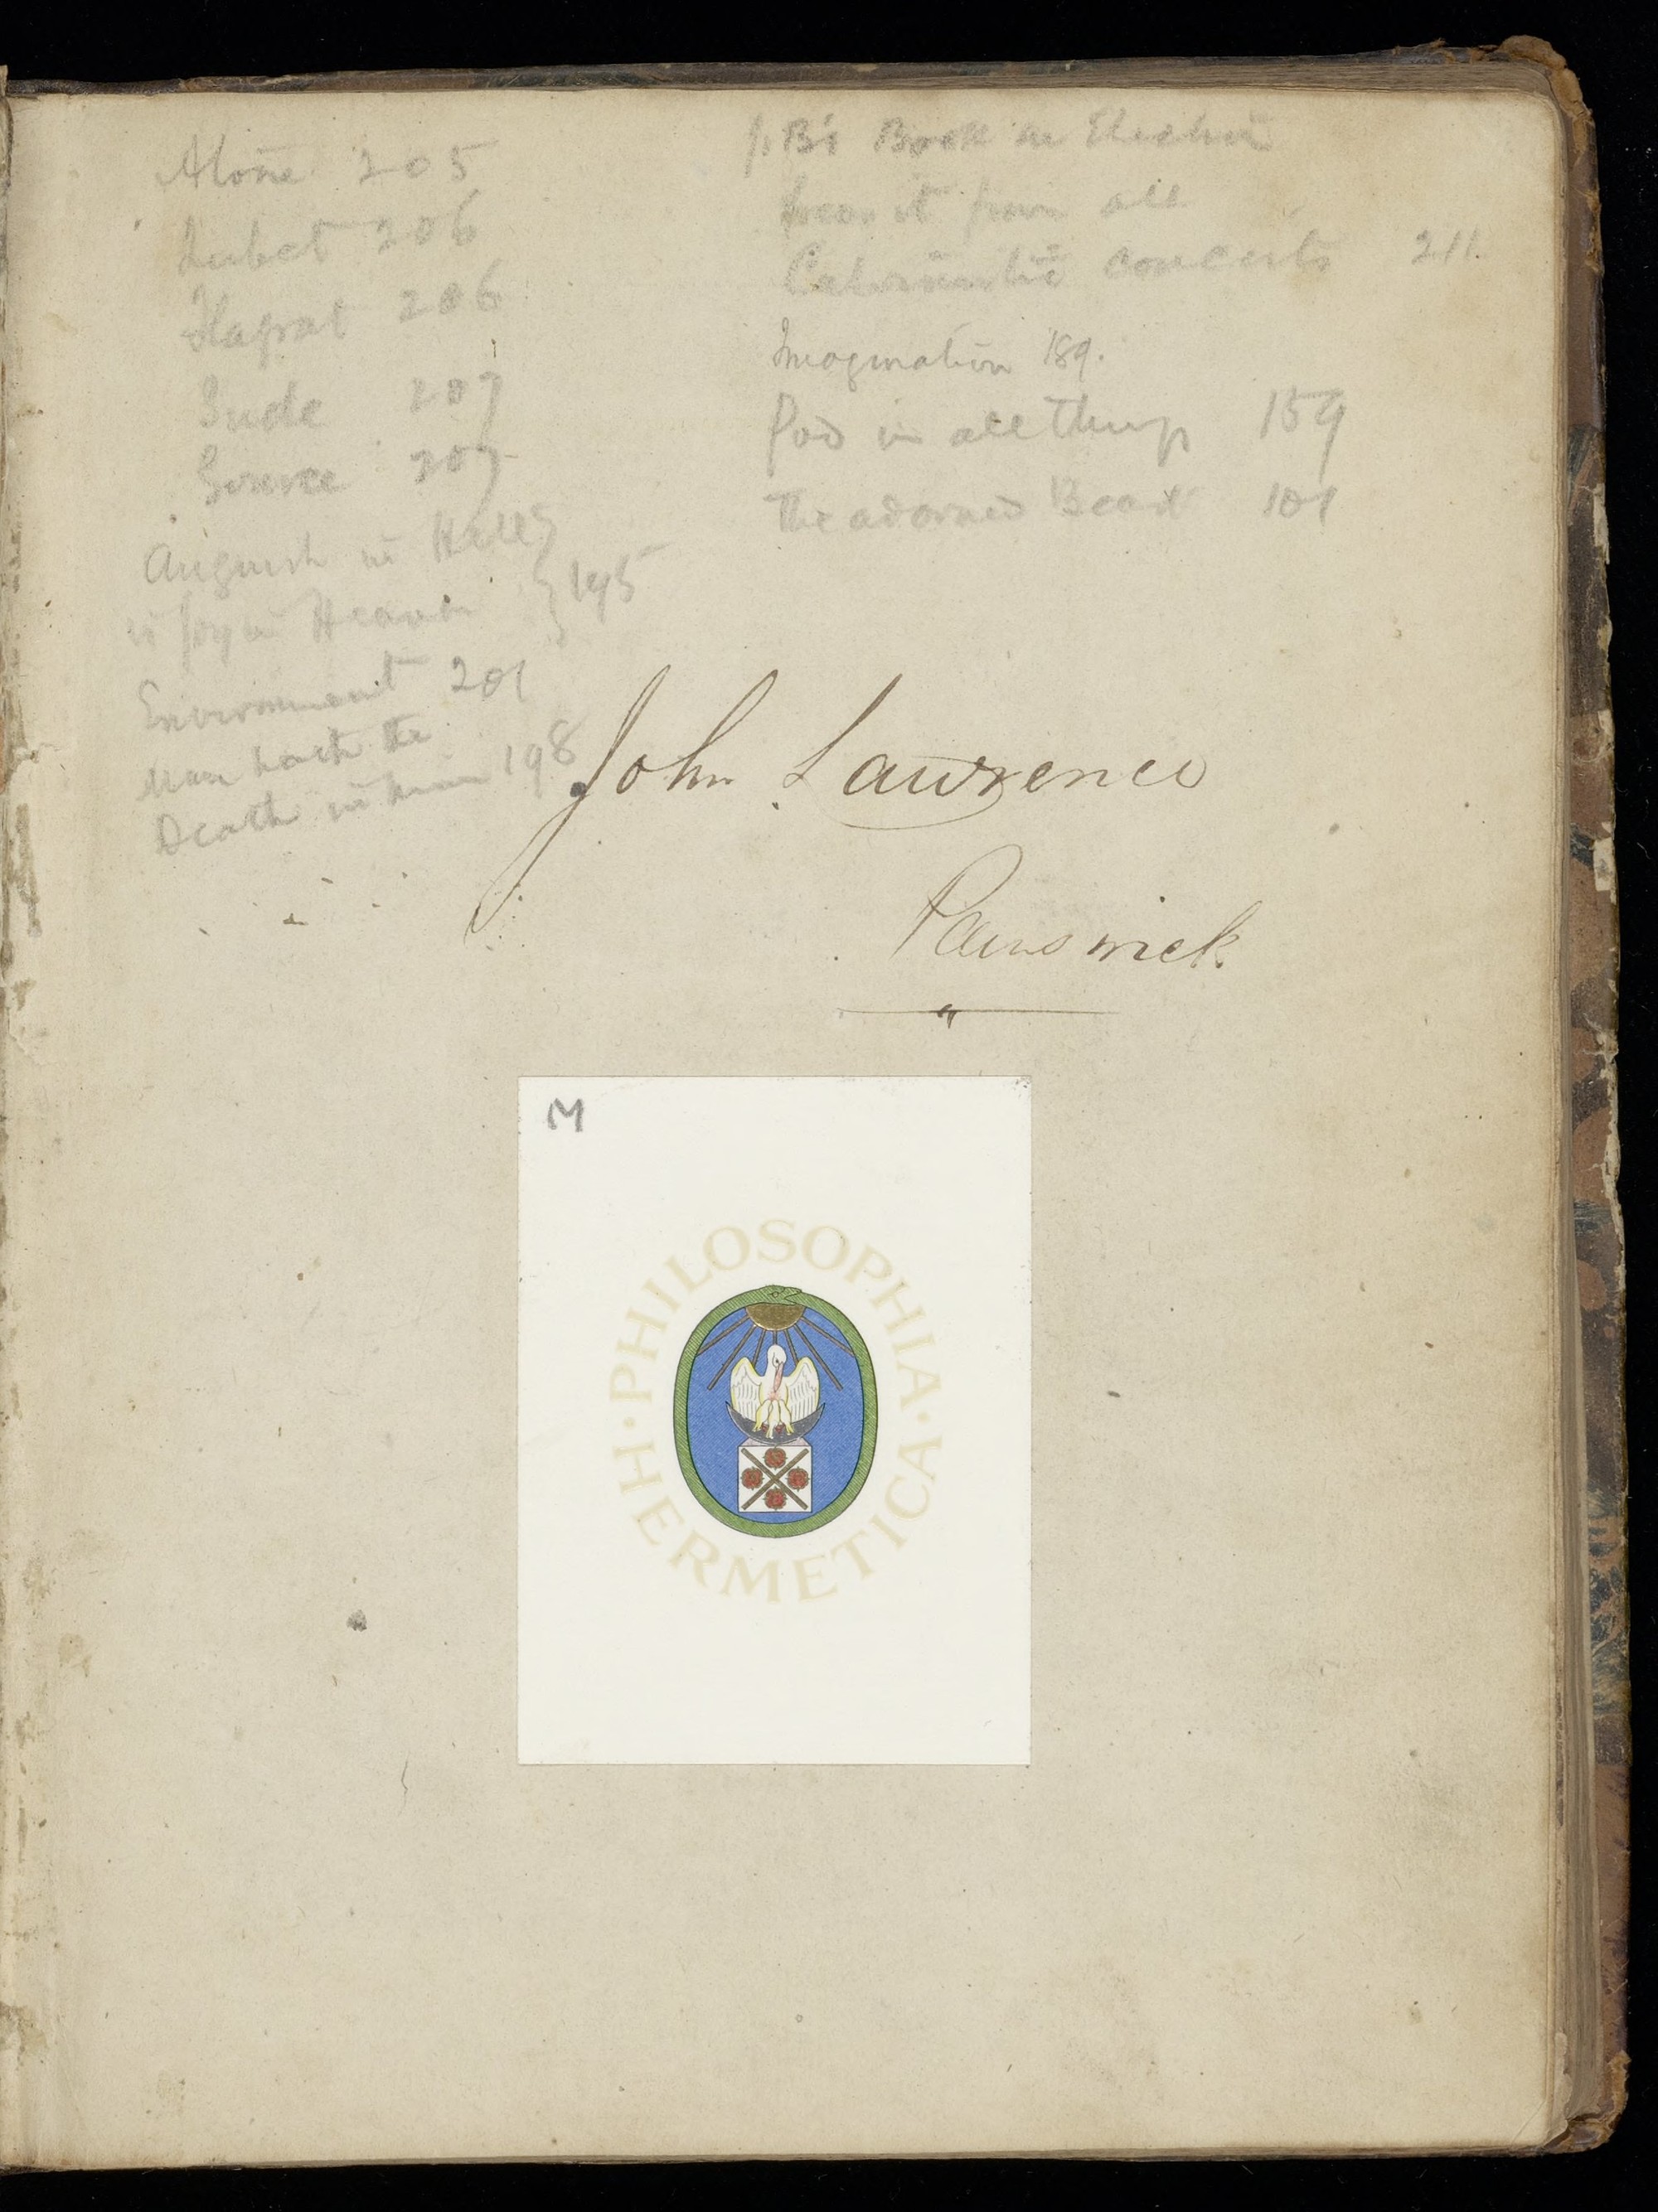 Alone 205
Lubet 206
Hagrat 206
Sude 207
Source 207
Anguish in Hell
is joy in Heaven } 195
Environment 201
Man hath the
Death in him 198
J. B's Book on Election
from all
Calvinistic conceits 211.
Imagination 189.
God in all things 159
The adorned Beast 101
John Lawrence
Painswick
M
PHILOSOPHIA · HERMETICA ·